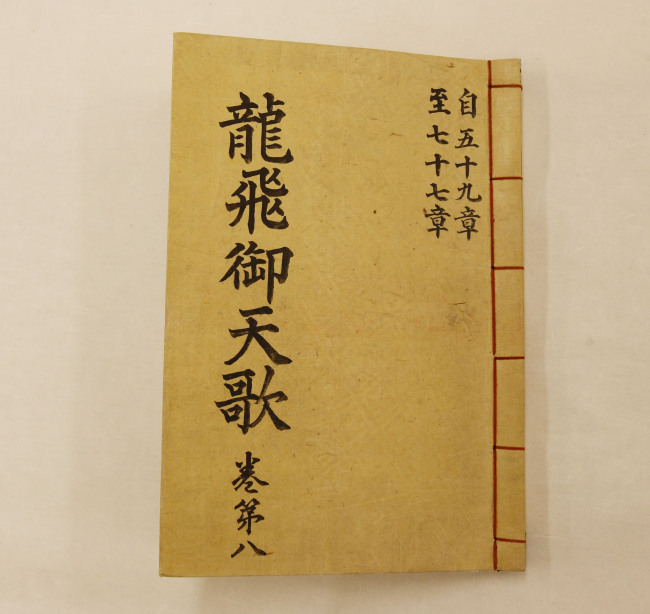 自五十九章
至七十七章
龍飛御天歌 卷第八